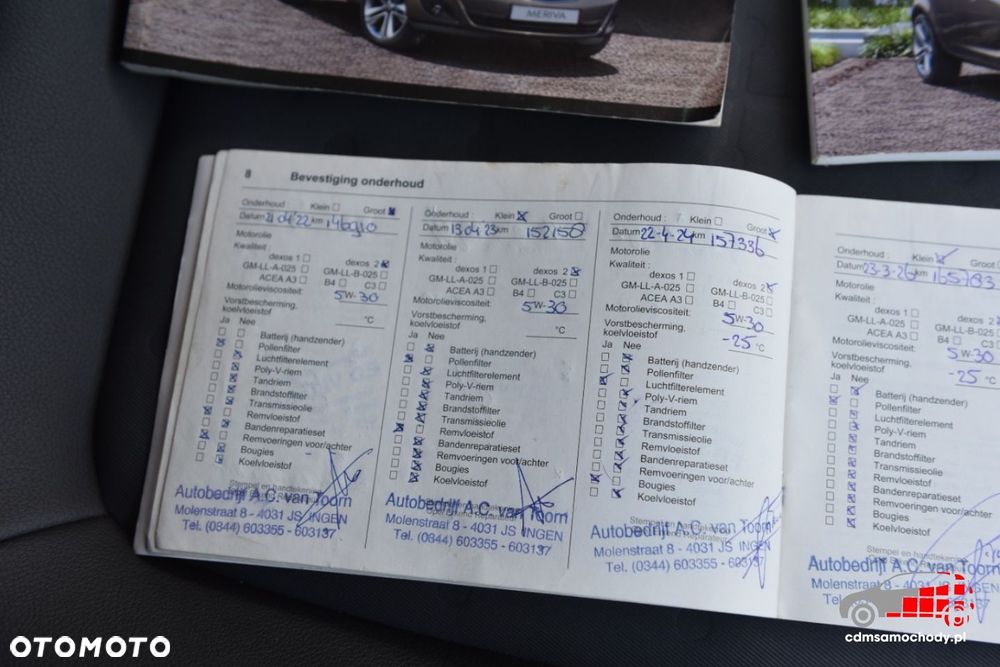 MERIVA
8 Bevestiging onderhoud
Onderhoud : Klein Groot
Datum 21 04 '22 km 146910
Motorolie
Kwaliteit :
dexos 1 dexos 2
GM-LL-A-025 GM-LL-B-025
ACEA A3 B4 C3
Motorolieviscositeit: 5W-30
Vorstbescherming,
koelvloeistof °C
Ja Nee
Batterij (handzender)
Pollenfilter
Luchtfilterelement
Poly-V-riem
Tandriem
Brandstoffilter
Transmissieolie
Remvloeistof
Bandenreparatieset
Remvoeringen voor/achter
Bougies
Koelvloeistof
Stempel en handtekening
Autobedrijf A.C. van Toorn
Molenstraat 8 - 4031 JS INGEN
Tel. (0344) 603355 - 603137
Onderhoud : Klein Groot
Datum 13 04 23 km 152150
Motorolie
Kwaliteit :
dexos 1 dexos 2
GM-LL-A-025 GM-LL-B-025
ACEA A3 B4 C3
Motorolieviscositeit: 5W-30
Vorstbescherming,
koelvloeistof °C
Ja Nee
Batterij (handzender)
Pollenfilter
Luchtfilterelement
Poly-V-riem
Tandriem
Brandstoffilter
Transmissieolie
Remvloeistof
Bandenreparatieset
Remvoeringen voor/achter
Bougies
Koelvloeistof
Autobedrijf A.C. van Toorn
Molenstraat 8 - 4031 JS INGEN
Tel. (0344) 603355 - 603137
Onderhoud : Klein Groot
Datum 22-4-24 km 157336
Motorolie
Kwaliteit :
dexos 1 dexos 2
GM-LL-A-025 GM-LL-B-025
ACEA A3 B4 C3
Motorolieviscositeit: 5W-30
Vorstbescherming,
koelvloeistof -25 °C
Ja Nee
Batterij (handzender)
Pollenfilter
Luchtfilterelement
Poly-V-riem
Tandriem
Brandstoffilter
Transmissieolie
Remvloeistof
Bandenreparatieset
Remvoeringen voor/achter
Bougies
Koelvloeistof
Autobedrijf A.C. van Toorn
Molenstraat 8 - 4031 JS INGEN
Tel. (0344) 603355 - 603137
Onderhoud : Klein
Datum 23-3-26 km 165783
Motorolie
Kwaliteit :
dexos 1 dexos 2
GM-LL-A-025 GM-LL-B-025
ACEA A3 B4 C3
Motorolieviscositeit: 5W-30
Vorstbescherming,
koelvloeistof -25 °C
Ja Nee
Batterij (handzender)
Pollenfilter
Luchtfilterelement
Poly-V-riem
Tandriem
Brandstoffilter
Transmissieolie
Remvloeistof
Bandenreparatieset
Remvoeringen voor/achter
Bougies
Koelvloeistof
Stempel en handtekening
Autobedrijf A.C. van Toorn
Molenstraat 8 - 4031 JS INGEN
OTOMOTO
cdmsamochody.pl